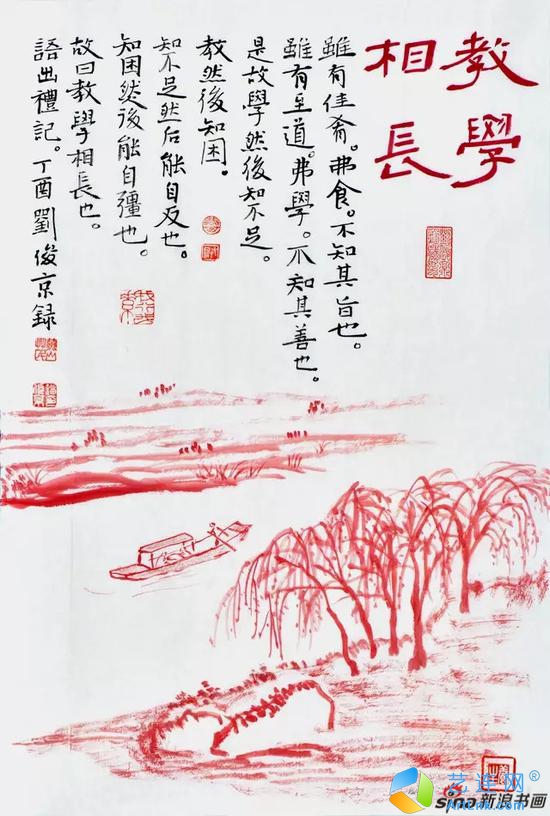 教學
相長
雖有佳肴。弗食。不知其旨也。
雖有至道。弗學。不知其善也。
是故學然後知不足。
教然後知困。
知不足然后能自反也。
知困然後能自彊也。
故曰教學相長也。
語出禮記。丁酉劉俊京録
艺连网®
sina新浪书画